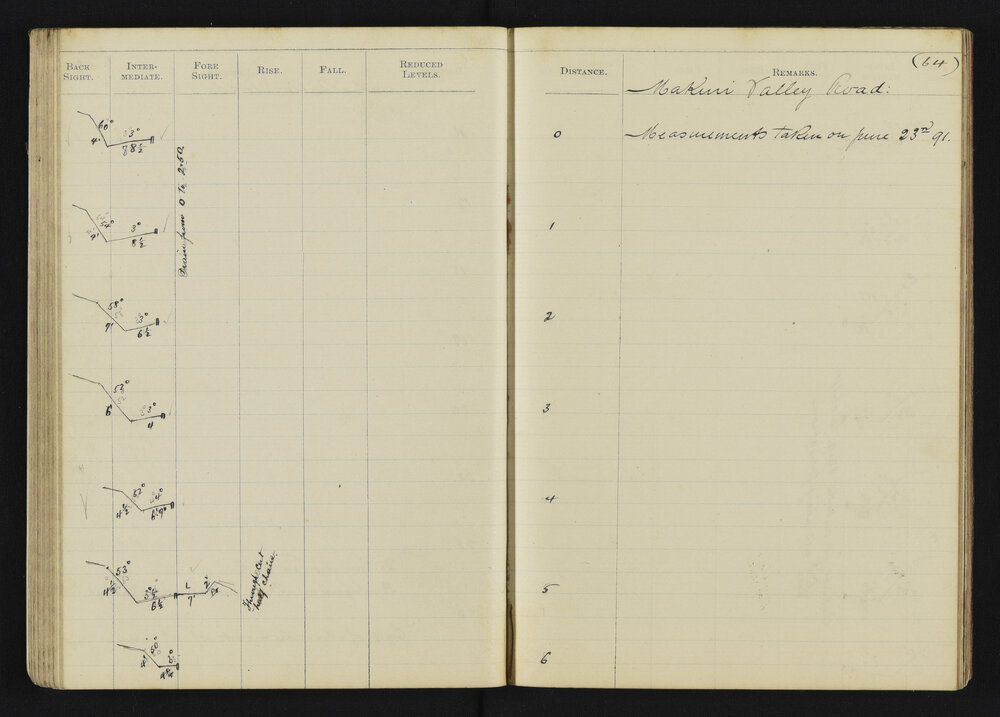 BACK SIGHT. INTER-MEDIATE. FORE SIGHT. RISE. FALL. REDUCED LEVELS.
60° 3°
4' 8½
Drain from 0 to 2.50.
54° 3°
4' 8½
58° 3°
7' 6½
53° 3°
6' 4
52° 4°
4½ 6'9"
53°
4½ 6½
L
7'
2'
Through Cut
half chain
50°
(64)
DISTANCE. REMARKS.
Makuri Valley Road:
0 Measurements taken on June 23rd 91.
1
2
3
4
5
6